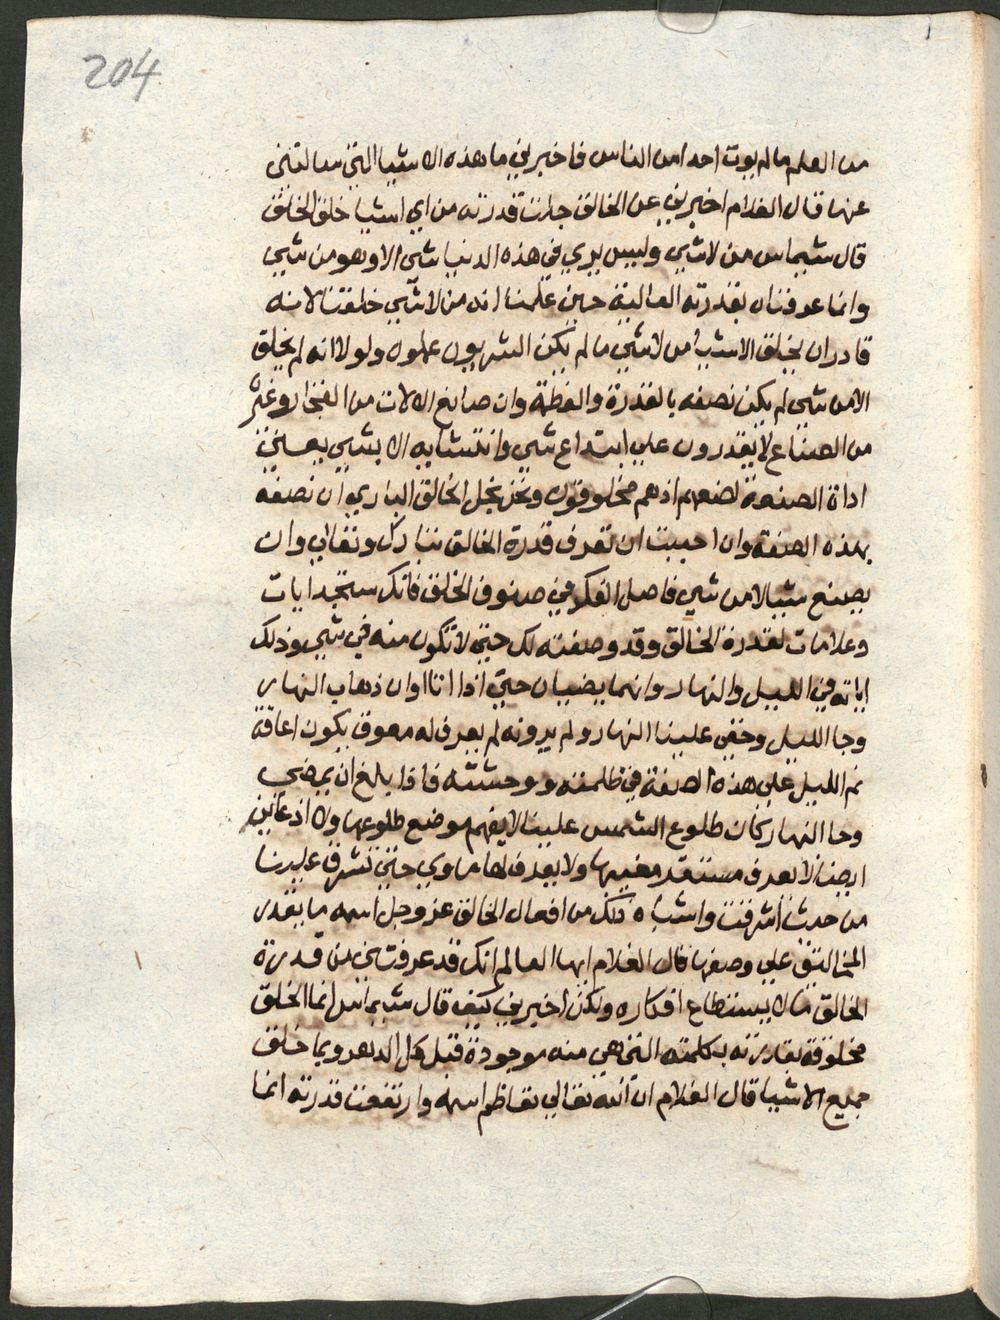 204
من العلم ما لم يوت احدا من الناس فاخبرني ما هذه الاشيا التي سالتني
عنها قال الغلام اخبرني عن الخالق جلت قدرته من اي اشيا خلق الخلق
قال شيماس من لا شي وليس يري في هذه الدنيا شي الا وهو من شي
وانما عرفناه بقدرته العالية حين علمنا انه من لا شي خلقتنا لانه
قادر ان يخلق الاشيا من لا شي ما لم يكن البشريون علمون ولولا انه لم يخلق
الا من شي لم يكن نصفه بالقدرة والعظمة وان صانع الالات من الفخار وغيره
من الصناع لا يقدرون علي ابتداع شي وانتشايه الا بشي يعني
اداة الصنعة لضعفهم اذ هم مخلوقون ونحن نجل الخالق الباري ان نصفه
بهذه الصفة وان احببت ان تعرف قدرة الخالق تبارك وتعالي وان
يصنع شيا لا من شي فاصل الفكر في صنوف الخلق فانك ستجد ايات
وعلامات لقدرة الخالق وقد وصفته لك حتي لا تكون منه في شي وذلك
اياته في الليل والنهار وانهما يضيان حتي اذا اتا اوان ذهاب النهار
وجا الليل وخفي علينا النهار ولم يرونه لم يعرف له معوق يكون اعاقة
ثم الليل علي هذه الصفة في ظلمته ووحشته فاذا بلغ ان يمضي
وجا النهار كان طلوع الشمس علينا لا يفهم موضع طلوعها ولا اذ غابن
ايضا لا يعرف مستقر مغيبها ولا يعرف لها ماوي حتي تشرق علينا
من حدث اشرقت واشباه ذلك من افعال الخالق عز وجل اسمه ما يقدر
المخالتق علي وصفها قال الغلام ايها العالم انك قد عرفتني من قدرة
الخالق ما لا يستطاع افكاره ولكن اخبرني كيف قال شيماس انما الخلق
مخلوقة بقدرته بكلمته التي هي منه موجودة قبل كل الدهر وبها خلق
جميع الاشيا قال الغلام ان الله تعالي تعاظم اسمه وارتفعت قدرته انما